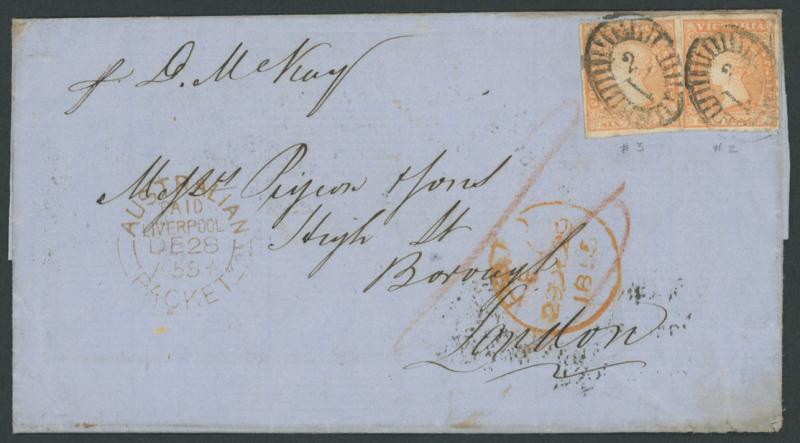 p D. McKay
VICTORIA
2
2
# 3
# 2
Messrs Pigeon & Sons
High St
Borough
London
AUSTRALIAN
PAID
LIVERPOOL
DE 28
55
PACKET
PAID
29
1855